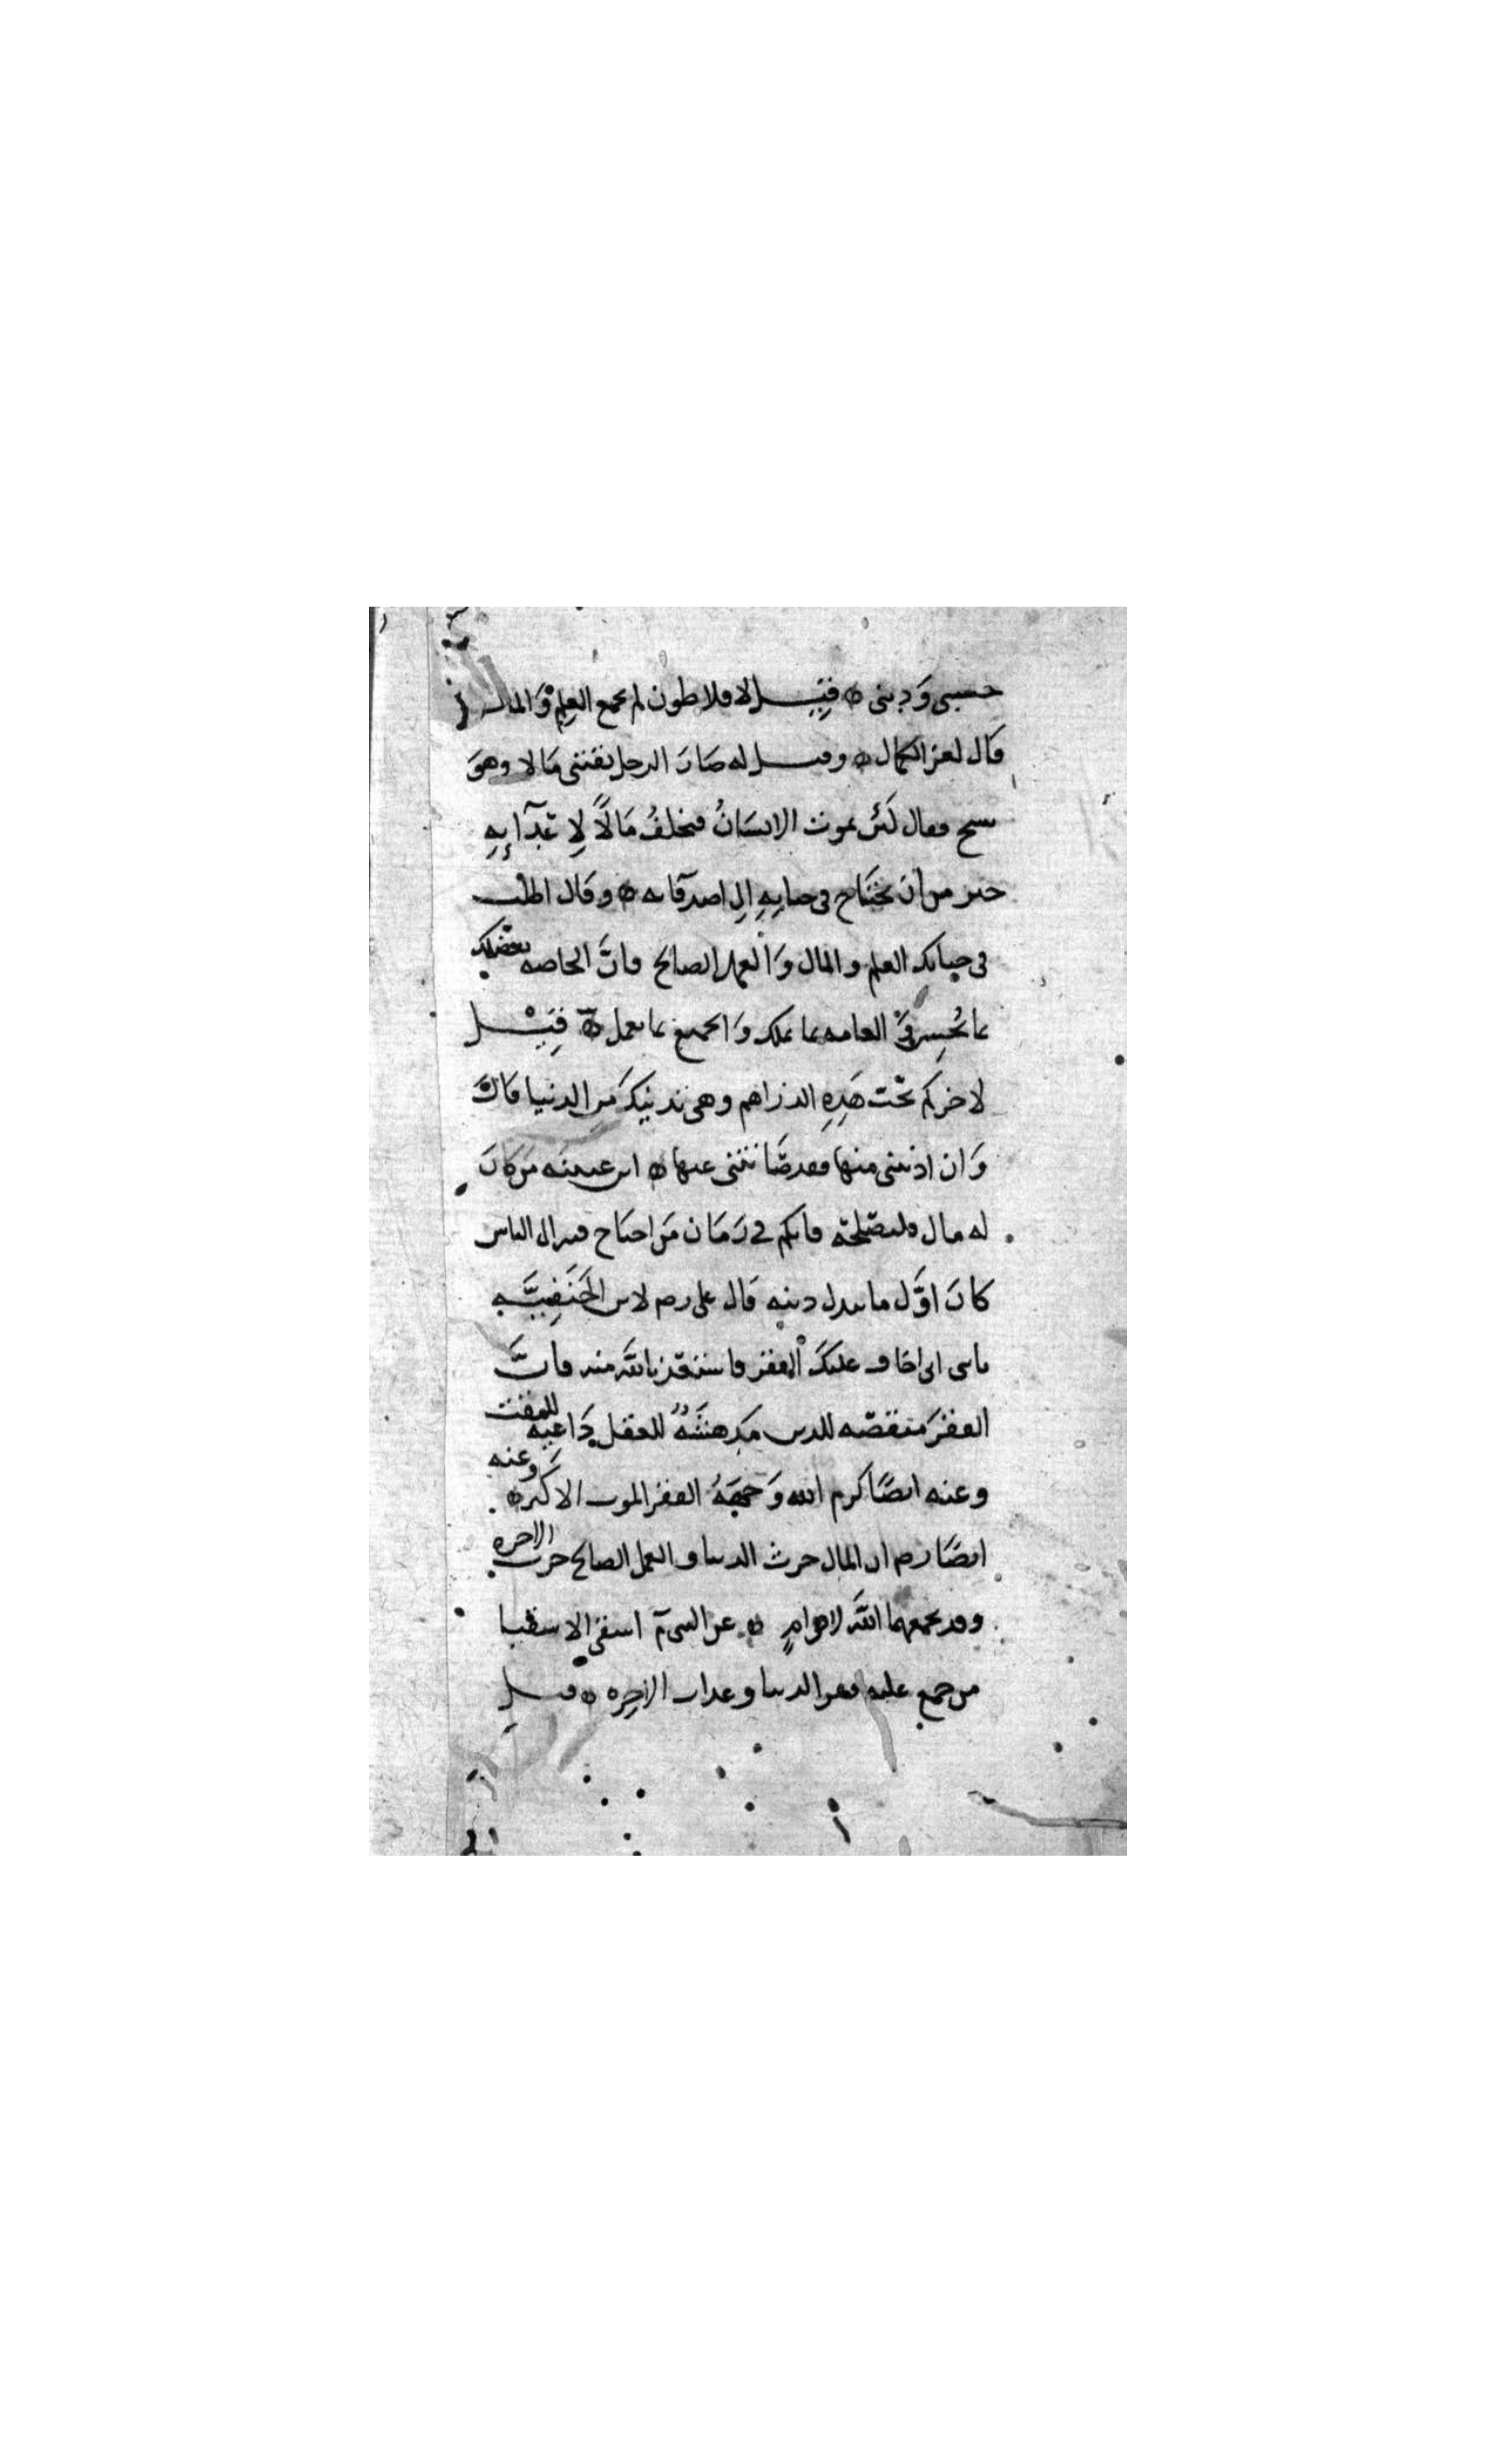 حسبى وَدينى ه قِيْلَ لافلاطون لم يجمع العِلمُ وَالمال
قَال لعز الكمال ه وقيل له صَارَ الرجل يقتنى مَالا وهوَ
شيخ فقال لَئن يموتَ الانسَانُ فيخلفُ مَالاً لِاعْدآئِهِ
خير من أن يحتَاج فى حياتِهِ الى اصدقآئه ه وقال اطلب
فى حياتك العلم والمال وَالعمل الصالح فانَّ الخاصه تفضلك
بما تُحسِن وَ العامه بما تملك وَالجميع بما تعمل ه قِيْل
لاخر كم تحّت هَذِهِ الدرَاهم وهى تدنيكَ مِن الدنيا فَقالَ
وَان ادنتنى منها فقد صَانتنى عنها ه ابن عيينه من كانَ
له مال فليصّلحْه فانكم فى زمَان مَن احتاج فيه الى الناس
كانَ اوَّل ما يبدل دينه قَال على رضه لابن الحَنَفِيَّه
يابنى انى اخاف عليكَ الفقر فاستعذ بالله منه فانَّ
الفقرَ منقصّه للدين مَدهشَةٌ للعقل دَاعيه للمقت
وعنه ايضًا كرم الله وَجهَهُ الفقر الموت الاكبر ه وعنه
ايضًا رضه ان المال حرث الدنيا والعمل الصالح حرث الاخره
وقد يجمعهما الله لاقوامٍ ه عن النبى م اشقى الاشقيا
من جمع عليه فقر الدنيا وعذاب الاخِره ه قيل